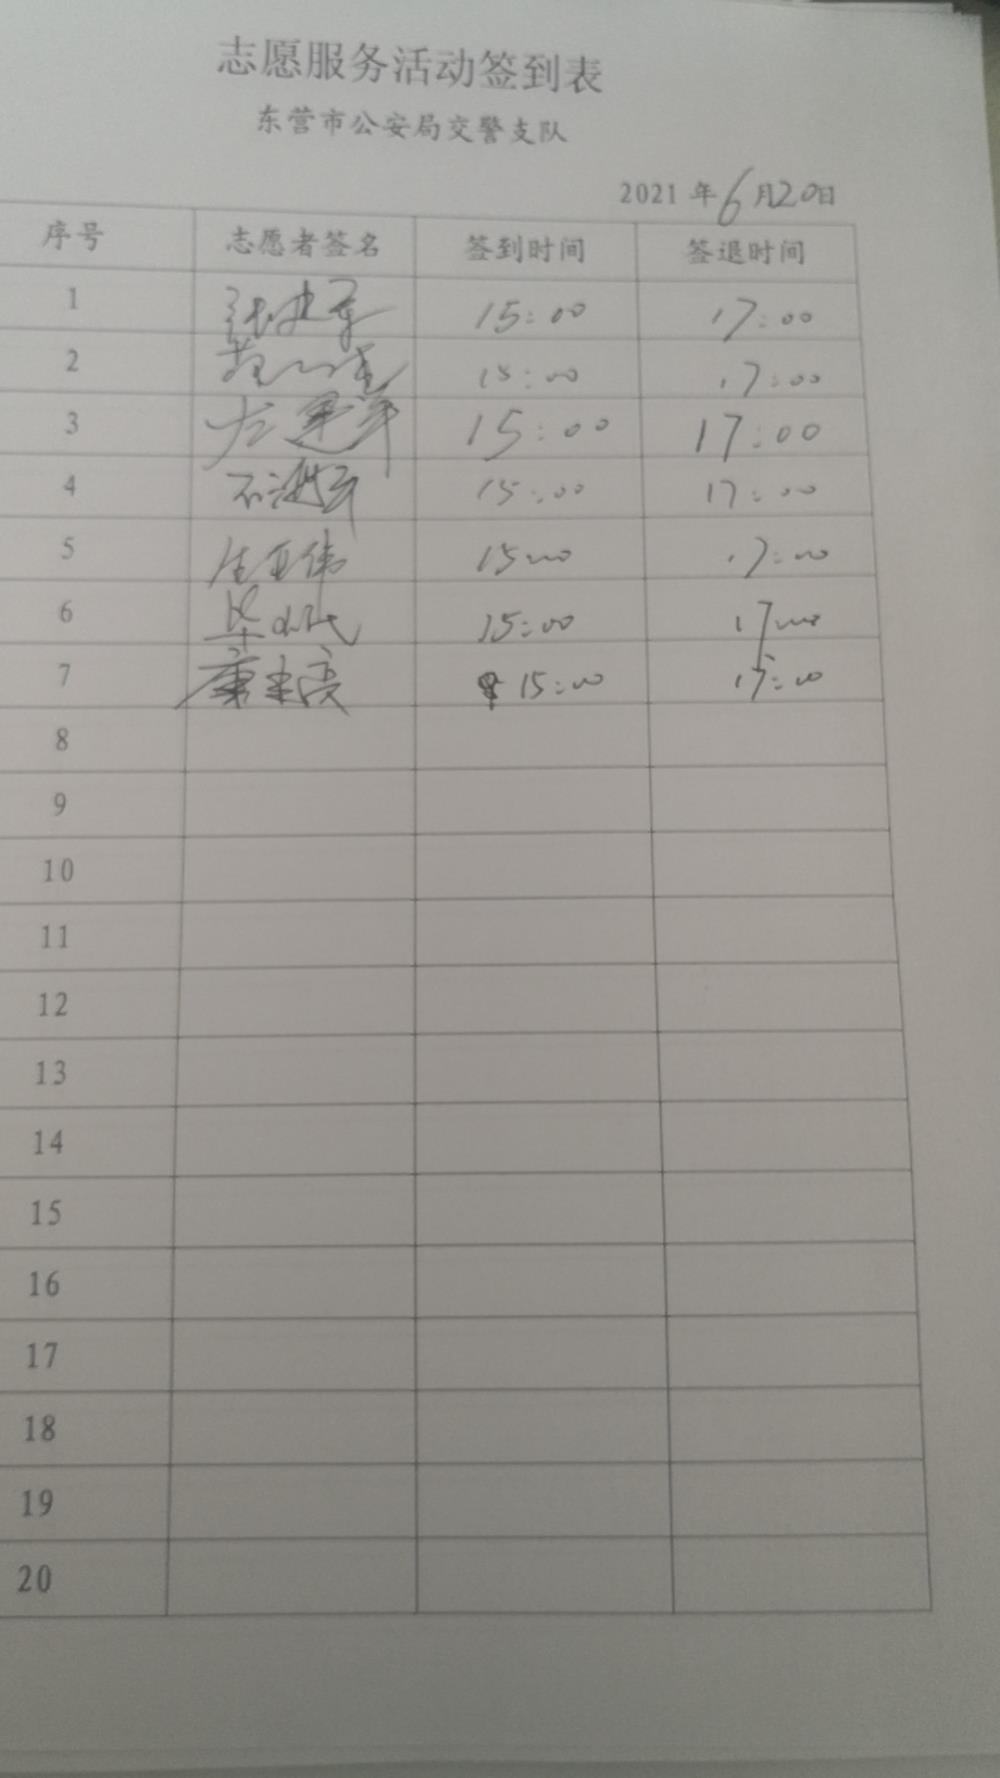 志愿服务活动签到表
东营市公安局交警支队
2021 年 6 月 20 日
序号 志愿者签名 签到时间 签退时间
1 张建军 15:00 17:00
2 15:00 17:00
3 15:00 17:00
4 15:00 17:00
5 15:00 17:00
6 15:00 17:00
7 15:00 17:00
8
9
10
11
12
13
14
15
16
17
18
19
20